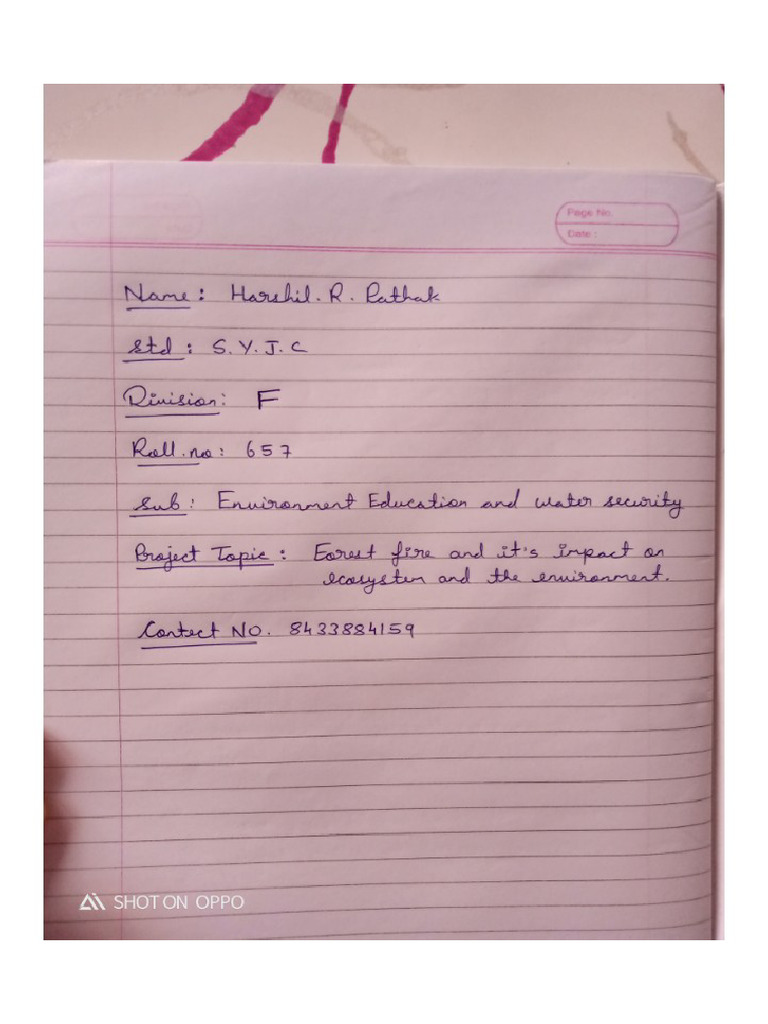 Page No.
Date :
Name : Harshil. R. Pathak
Std : S. Y. J. C
Division : F
Roll. no : 657
Sub : Environment Education and water security
Project Topic : Forest fire and it's impact on
ecosystem and the environment.
Contect No. 8433884159
SHOT ON OPPO